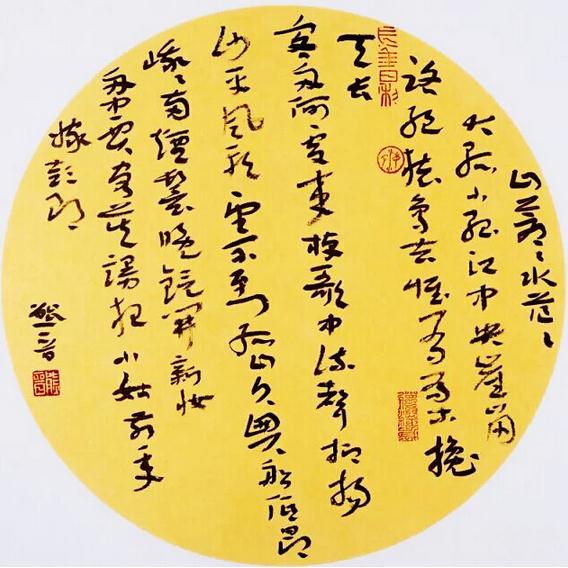 山蒼〻水茫〻
大孤小孤江中央崖崩
路絕猿鳥去惟有喬木攙
天長
客舟何處來棹歌中流聲抑揚
沙平風軟望不到孤山久與船低昂
峨〻兩煙鬟曉鏡開新妝
舟中賈客莫謾狂小姑前年
嫁彭郎